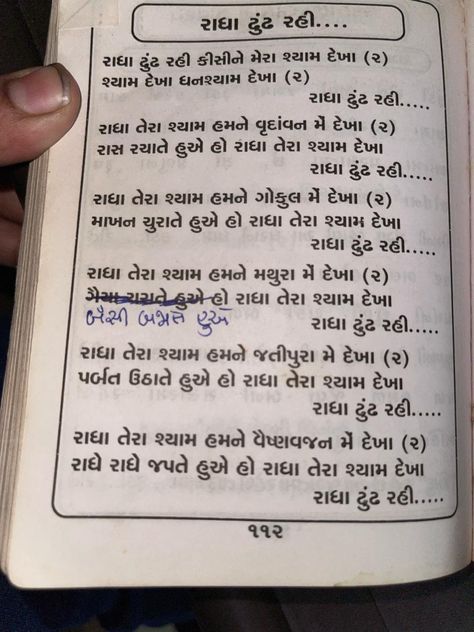 રાધા ઢુંઢ રહી....
રાધા ઢુંઢ રહી કીસીને મેરા શ્યામ દેખા (૨)
શ્યામ દેખા ઘનશ્યામ દેખા (૨)
રાધા ઢુંઢ રહી.....
રાધા તેરા શ્યામ હમને વૃદાંવન મેં દેખા (૨)
રાસ રચાતે હુએ હો રાધા તેરા શ્યામ દેખા
રાધા ઢુંઢ રહી.....
રાધા તેરા શ્યામ હમને ગોકુલ મેં દેખા (૨)
માખન ચુરાતે હુએ હો રાધા તેરા શ્યામ દેખા
રાધા ઢુંઢ રહી.....
રાધા તેરા શ્યામ હમને મથુરા મેં દેખા (૨)
ગૈયા ચરાતે હુએ હો રાધા તેરા શ્યામ દેખા
બંસી બજાતે હુએ
રાધા ઢુંઢ રહી.....
રાધા તેરા શ્યામ હમને જતીપુરા મેં દેખા (૨)
પર્બત ઉઠાતે હુએ હો રાધા તેરા શ્યામ દેખા
રાધા ઢુંઢ રહી.....
રાધા તેરા શ્યામ હમને વૈષ્ણવજન મેં દેખા (૨)
રાધે રાધે જપતે હુએ હો રાધા તેરા શ્યામ દેખા
રાધા ઢુંઢ રહી.....
૧૧૨